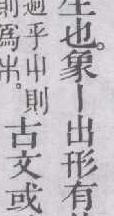 生也。象丨出形有
過乎屮則
則爲𣎳。
古文或